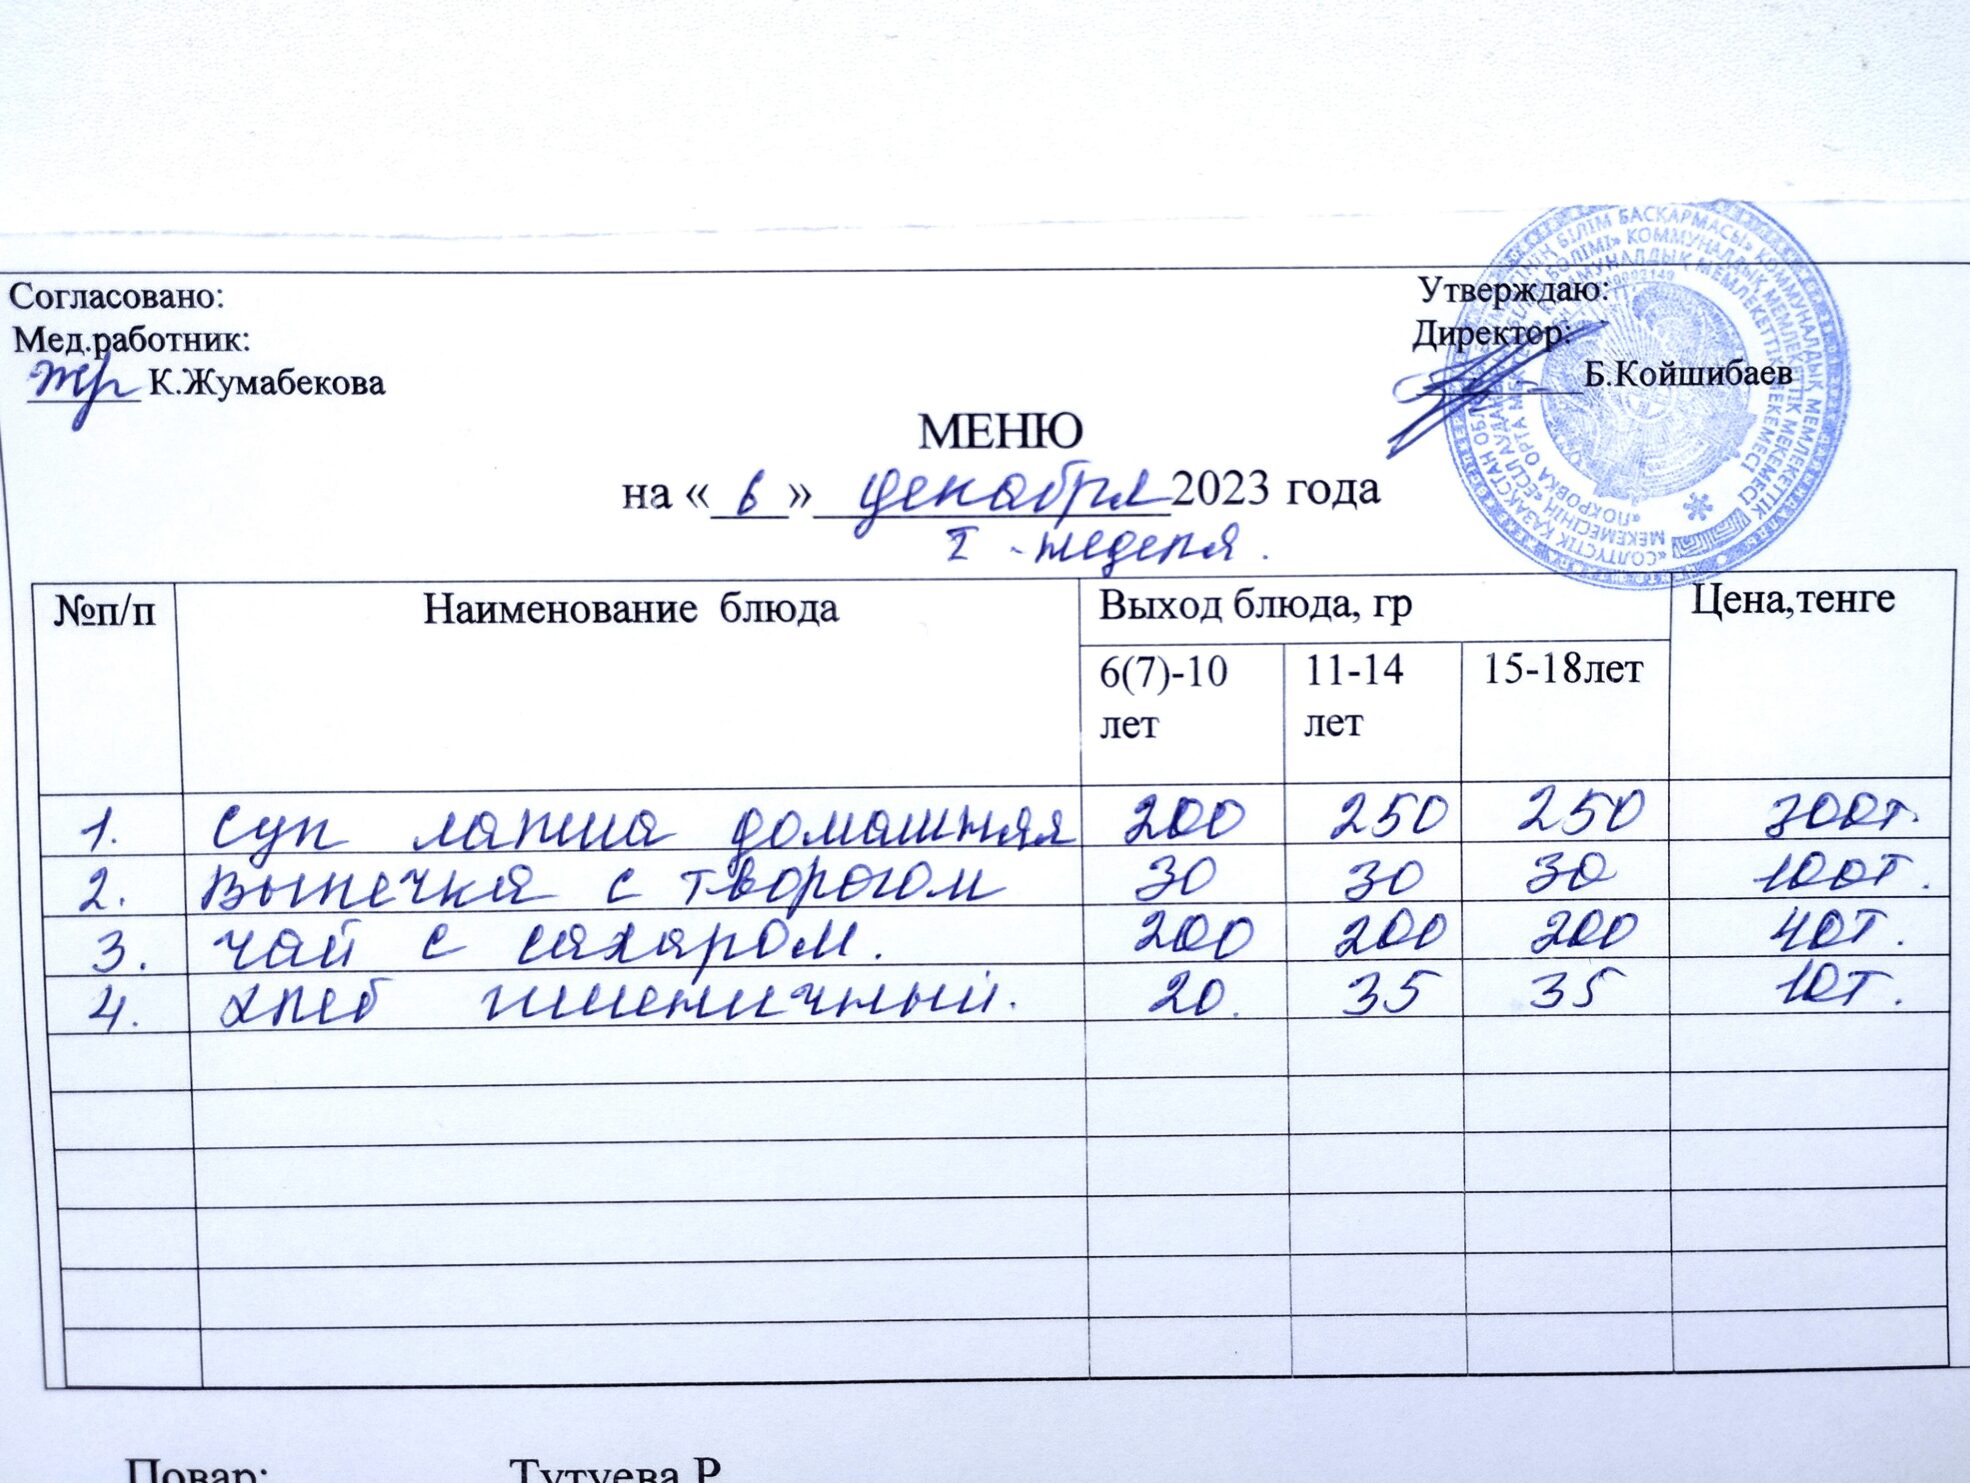 Согласовано:
Мед.работник:
К.Жумабекова
Утверждаю:
Директор:
Б.Койшибаев
МЕНЮ
на « 6 » декабря 2023 года
I - неделя.
№п/п Наименование блюда Выход блюда, гр Цена,тенге
6(7)-10 лет 11-14 лет 15-18лет
1. Суп лапша домашняя 200 250 250 300т.
2. Выпечка с творогом 30 30 30 100т.
3. чай с сахаром. 200 200 200 40т.
4. хлеб пшеничный. 20. 35 35 10т.
Повар: Тутуева Р